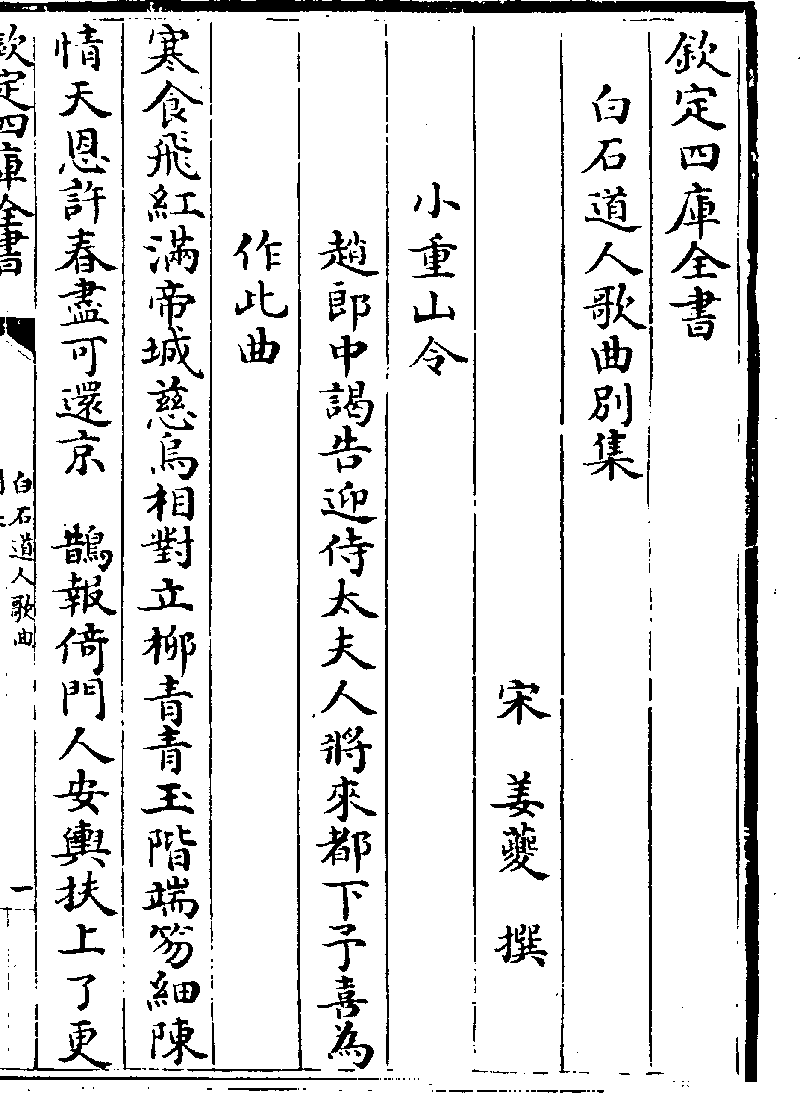 欽定四庫全書
白石道人歌曲別集
宋　姜夔　撰
小重山令
趙郎中謁告迎侍太夫人將來都下予喜為
作此曲
寒食飛紅滿帝城慈烏相對立柳青青玉階端笏細陳
情天恩許春盡可還京　鵲報倚門人安輿扶上了更
欽定四庫全書
白石道人歌曲
一